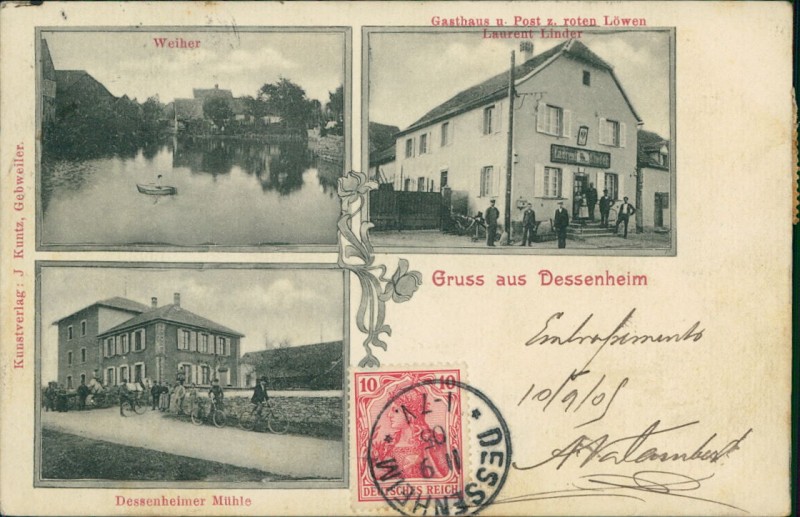 Weiher
Gasthaus u. Post z. roten Löwen
Laurent Linder
Kunstverlag: J Kuntz, Gebweiler.
Gruss aus Dessenheim
10/9/05
10 10
DEUTSCHES REICH
DESSENHEIM
Dessenheimer Mühle